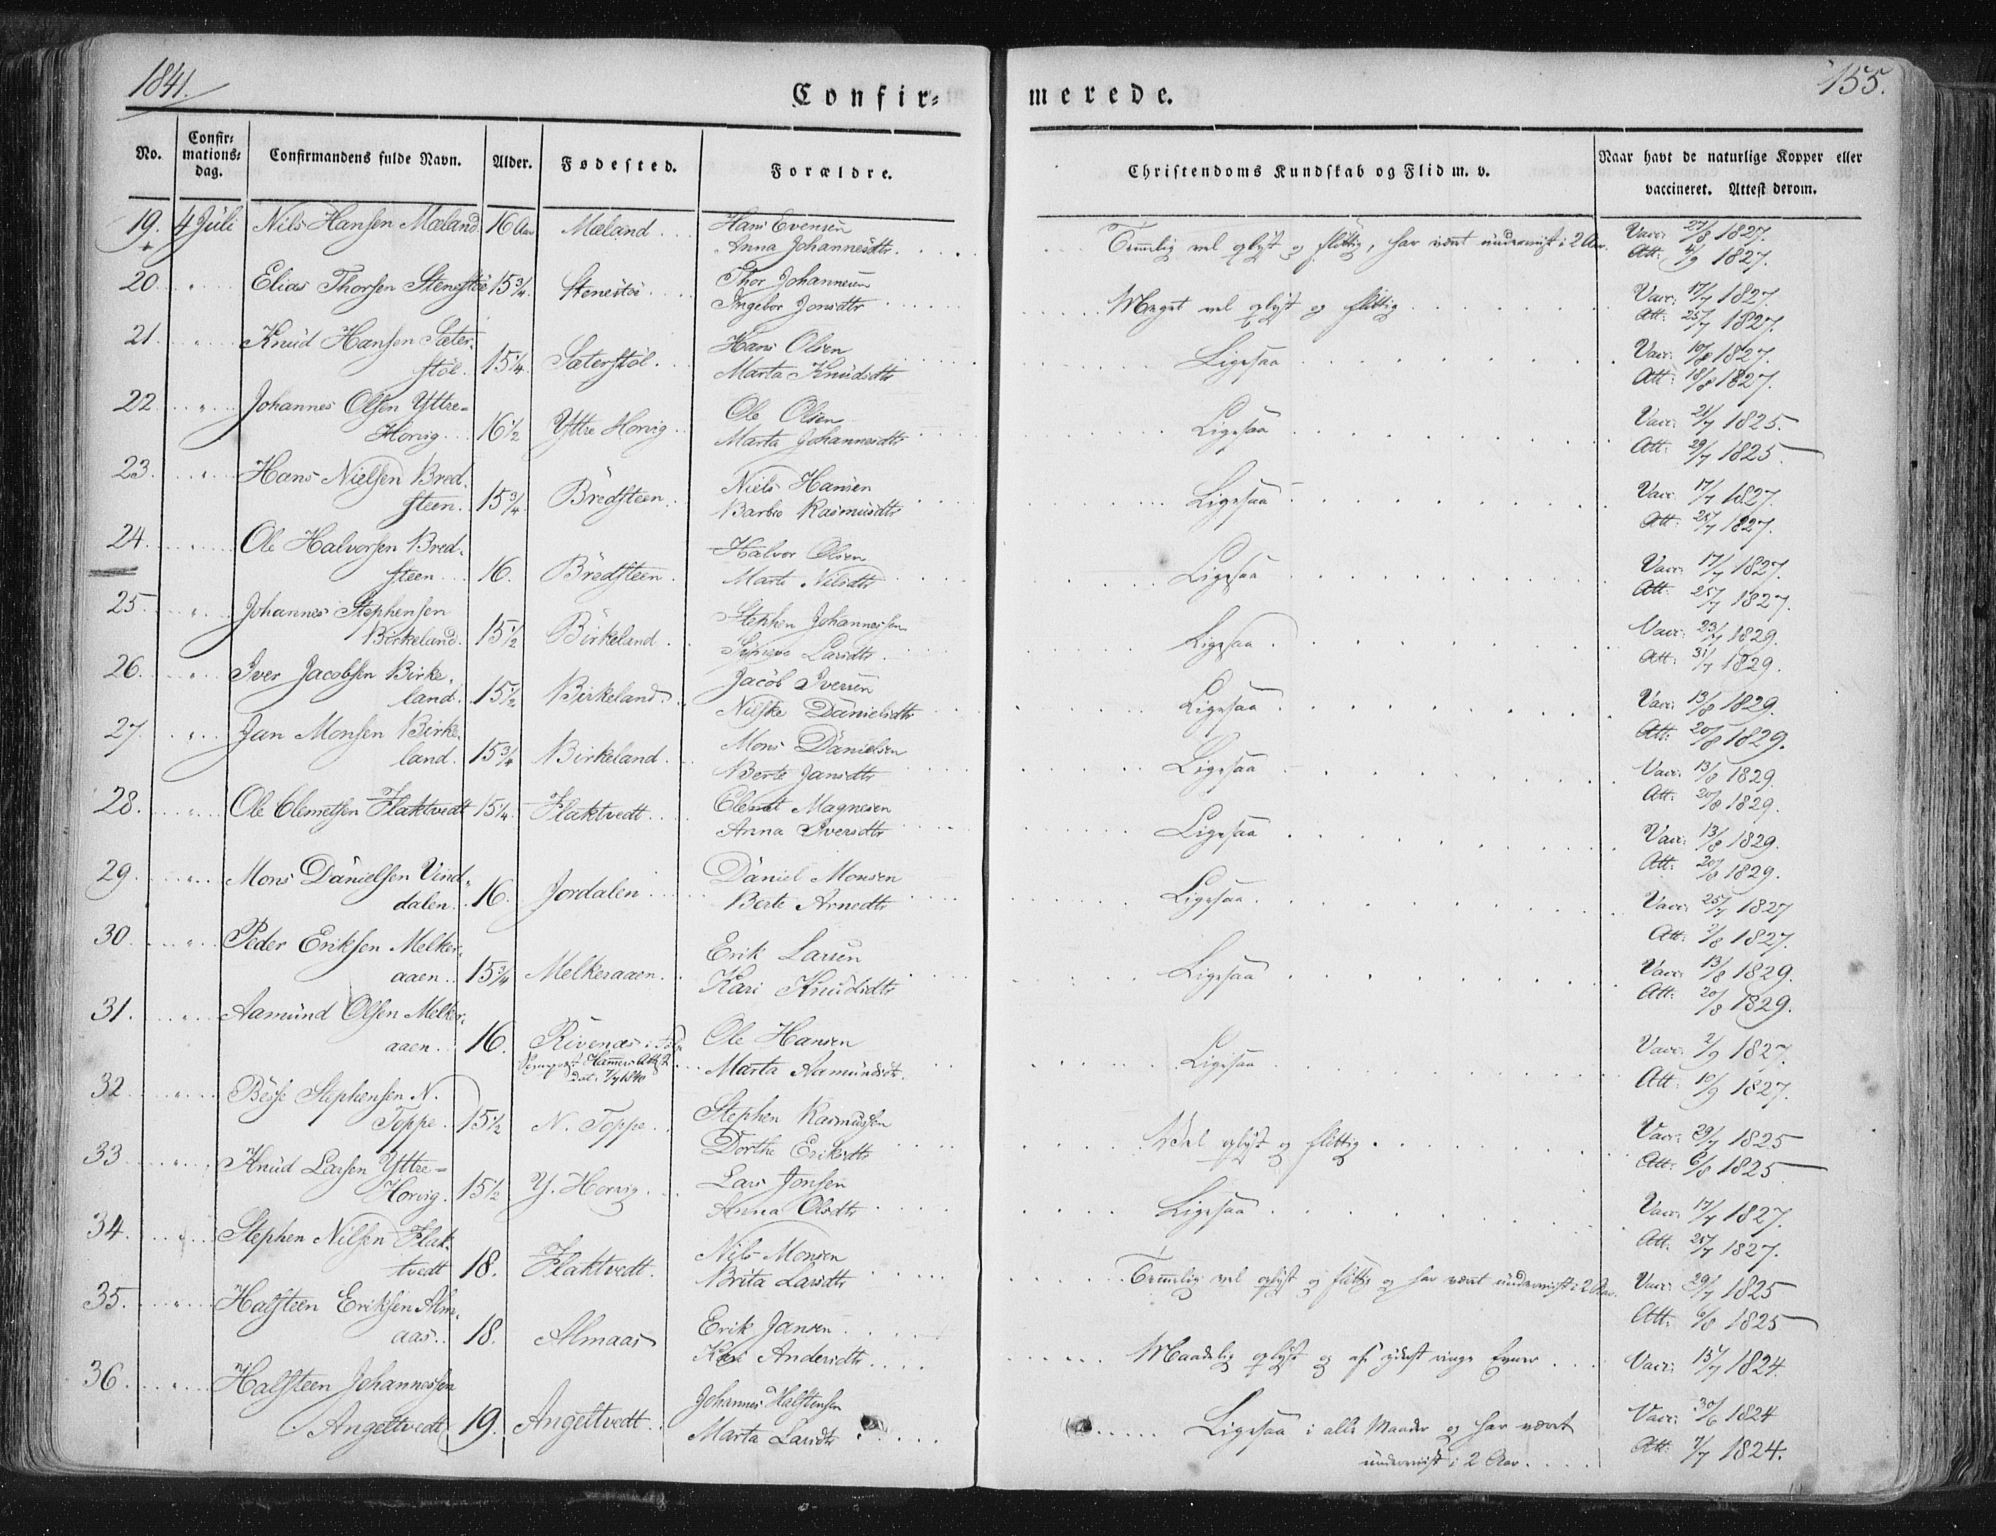 1841.
155.
Confir-
merede.
No.
Confir-
mations-
dag.
Confirmandens fulde Navn.
Alder.
Fødested.
Forældre.
Christendoms Kundskab og Flid m. v.
Naar havt de naturlige Kopper eller
vaccineret. Attest derom.
19. 4 Juli Nils Hansen Mæland 16 Aar Mæland Hans Evensen Temlig vel oplyst og flittig, har været underviist i 2 Aar. Vacc: 27/8 1827.
Anna Johannesdtr. Att: 4/9 1827.
20 " Elias Thorsen Stenestöe 15 3/4 Stenestöe Thor Johannesen Meget vel oplyst og flittig Vacc: 17/7 1827.
Ingebor Jonsdtr Att: 25/7 1827.
21 " Knud Hansen Sæter- Hans Olsen Ligesaa Vacc: 10/8 1827.
stöl. 15 1/4. Sæterstöl. Marta Knudsdtr Att: 18/8 1827.
22 " Johannes Olsen Yttre- Ole Olsen Ligesaa Vacc: 21/7 1825.
Horvig 16 1/2 Yttre Horvig Marta Johannesdtr Att: 29/7 1825
23. " Hans Nielsen Bred- Niels Hansen Ligesaa Vacc: 17/7 1827.
steen. 15 3/4 Bredsteen. Barbro Rasmusdtr Att: 25/7 1827.
24. Ole Halvorsen Bred- Halvor Olsen Ligesaa Vacc: 17/7 1827.
steen 16. Bredsteen. Marte Nilsdtr Att: 25/7 1827.
25. " Johannes Stephensen Stephen Johannessen Ligesaa Vacc: 23/7 1829.
Birkeland. 15 1/2 Birkeland. Larsdtr. Att: 31/7 1829.
26. " Iver Jacobsen Birke- Jacob Iversen Ligesaa Vacc: 13/8 1829.
land. 15 1/2 Birkeland Nilske Danielsdtr Att: 20/8 1829.
27. " Jan Monsen Birke- Mons Danielsen Ligesaa Vacc: 13/8 1829
land. 15 3/4 Birkeland. Berte Jansdtr Att: 20/8 1829.
28. " Ole Clemetsen Flaktvedt 15 1/4. Flaktvedt Clemt Magnesen Ligesaa Vacc: 13/8 1829.
Anna Iversdtr Att: 20/8 1829.
29. " Mons Danielsen Vind- Daniel Monsen Ligesaa Vacc: 25/7 1827
dalen. 16. Jordalen Berte Arnedtr Att: 2/8 1827.
30. " Peder Eriksen Melker- Erik Larsen Ligesaa Vacc: 13/8 1829.
aaen. 15 3/4 Melkeraaen. Kari Knudsdtr Att: 20/8 1829.
31. " Aamund Olsen Melker- Ole Hansen Ligesaa Vacc: 2/9 1827.
aaen. 16. Rivenæs i Marta Aamundsdtr. Att: 10/9 1827.
Hammers Att.
dat. 1840
32. " Stephensen N. Stephen Rasmussen Vel oplyst og flittig. Vacc: 29/7 1825
Toppe. 15 1/2 N. Toppe. Dorthe Eriksdtr Att: 6/8 1825
33. " Knud Larsen Yttre- Lars Jonsen Ligesaa Vacc: 17/7 1827.
Horvig. 15 1/2 Y. Horvig. Anna Olsdtr Att: 25/7 1827.
34. Stephen Nilsen Flak- Nils Monsen Temmelig vel oplyst og flittig og har været underviist i 2 Aar. Vacc: 29/7 1825
tvedt 18. Flaktvedt. Brita Larsdtr Att: 6/8 1825
35. " Halsteen Eriksen Alm- Erik Jansen Maadelig oplyst og af ydst ringe Evner Vacc: 15/7 1824.
aas. 18. Almaas Andersdtr.
36. " Halsteen Johannessen Johannes Halstensen Ligesaa i alle Maader og har været Vacc: 30/6 1824
Angeltvedt 19. Angeltvedt. Marta Larsdtr underviist i 2 Aar. Att: 7/7 1824.